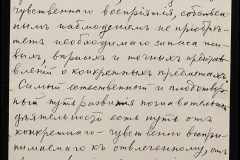 чувственнаго воспріятія, собствен-
нымъ наблюденіемъ не пріобрѣ-
тетъ необходимаго запаса пер-
выхъ, вѣрныхъ и точныхъ представ-
вленій о конкретныхъ предметахъ.
Самый естественный и плодотвор-
ный путь развитія познавательной
дѣятельности есть путь отъ
конкретнаго - чувственно воспри-
нимаемаго къ отвлеченному, отъ